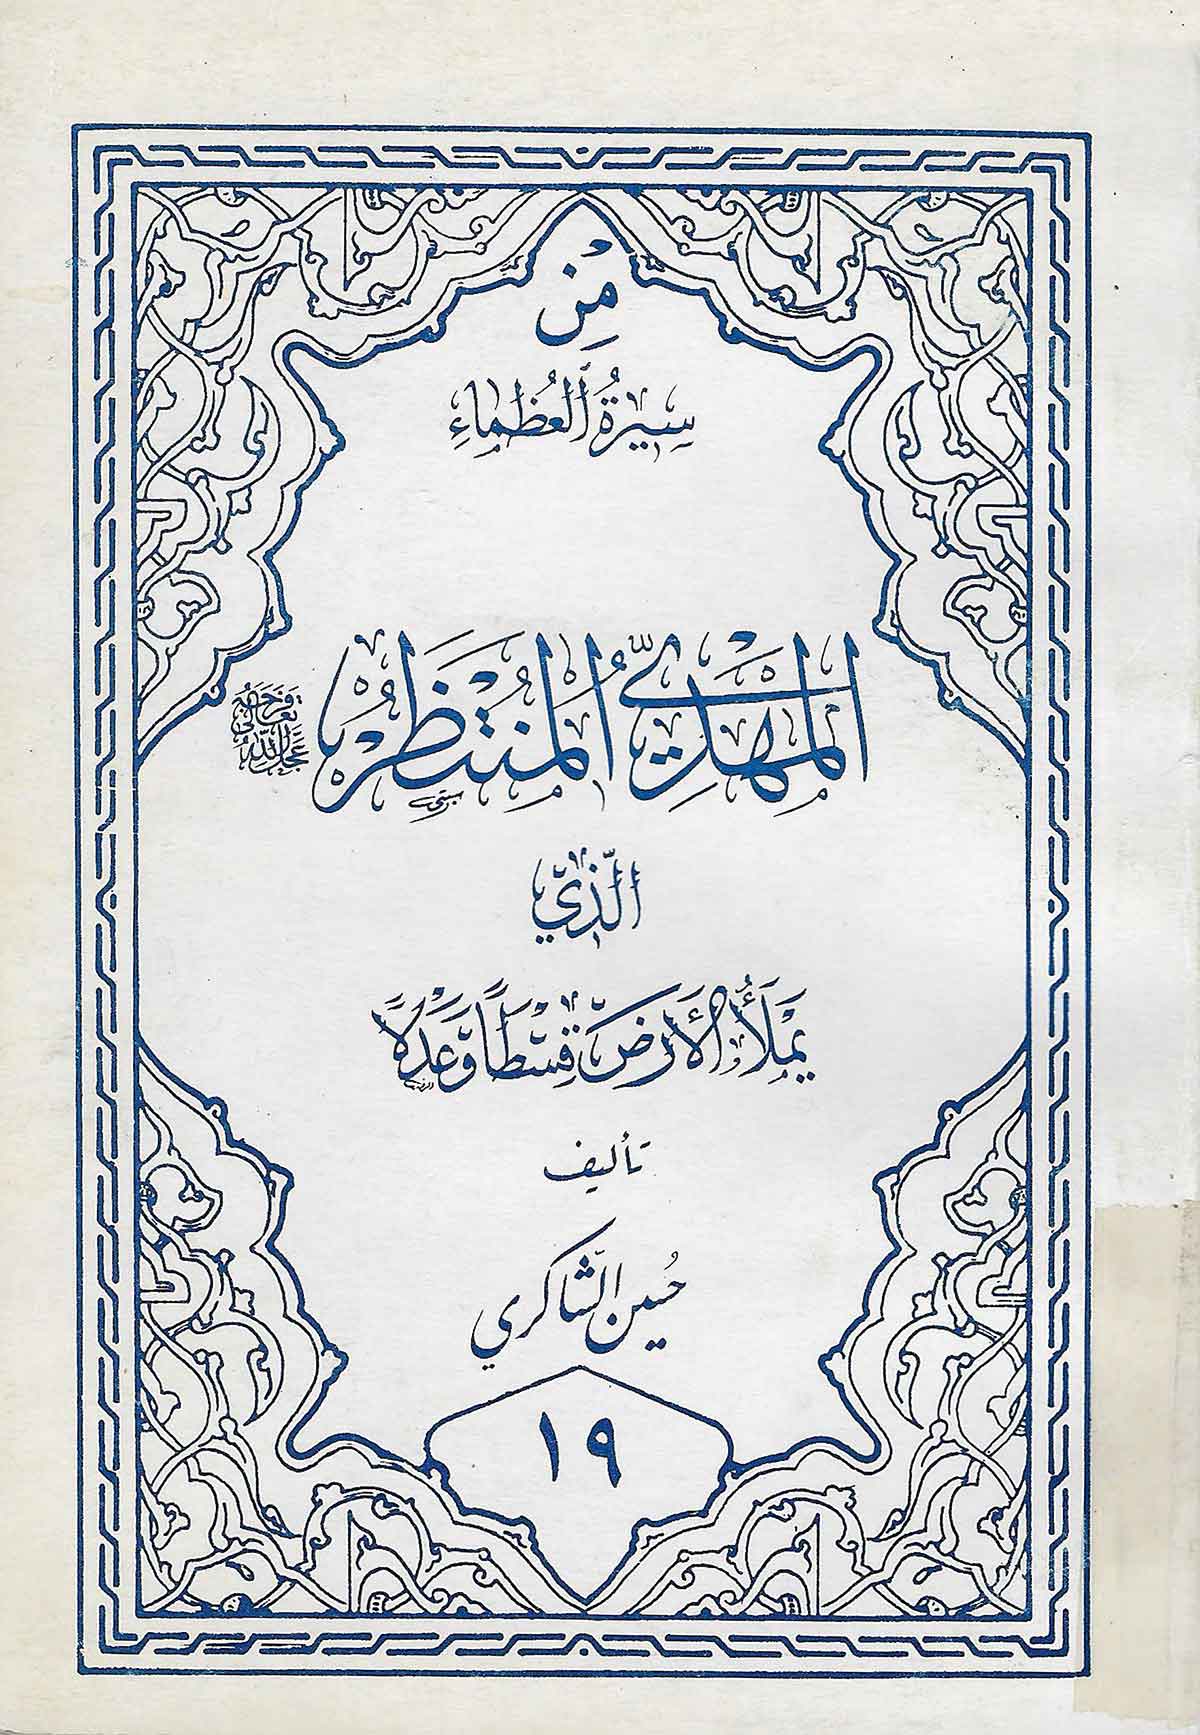 مِنْ
سِيرَةُ ٱلعُظَمَاءِ
المَهْدِيُّ المُنْتَظَرُ عَجَّلَ اللهُ تعالى فَرَجَهُ
الَّذِي
يَمْلَأُ الأَرْضَ قِسْطًا وَعَدْلًا
تأليف
حُسين الشّاكري
١٩